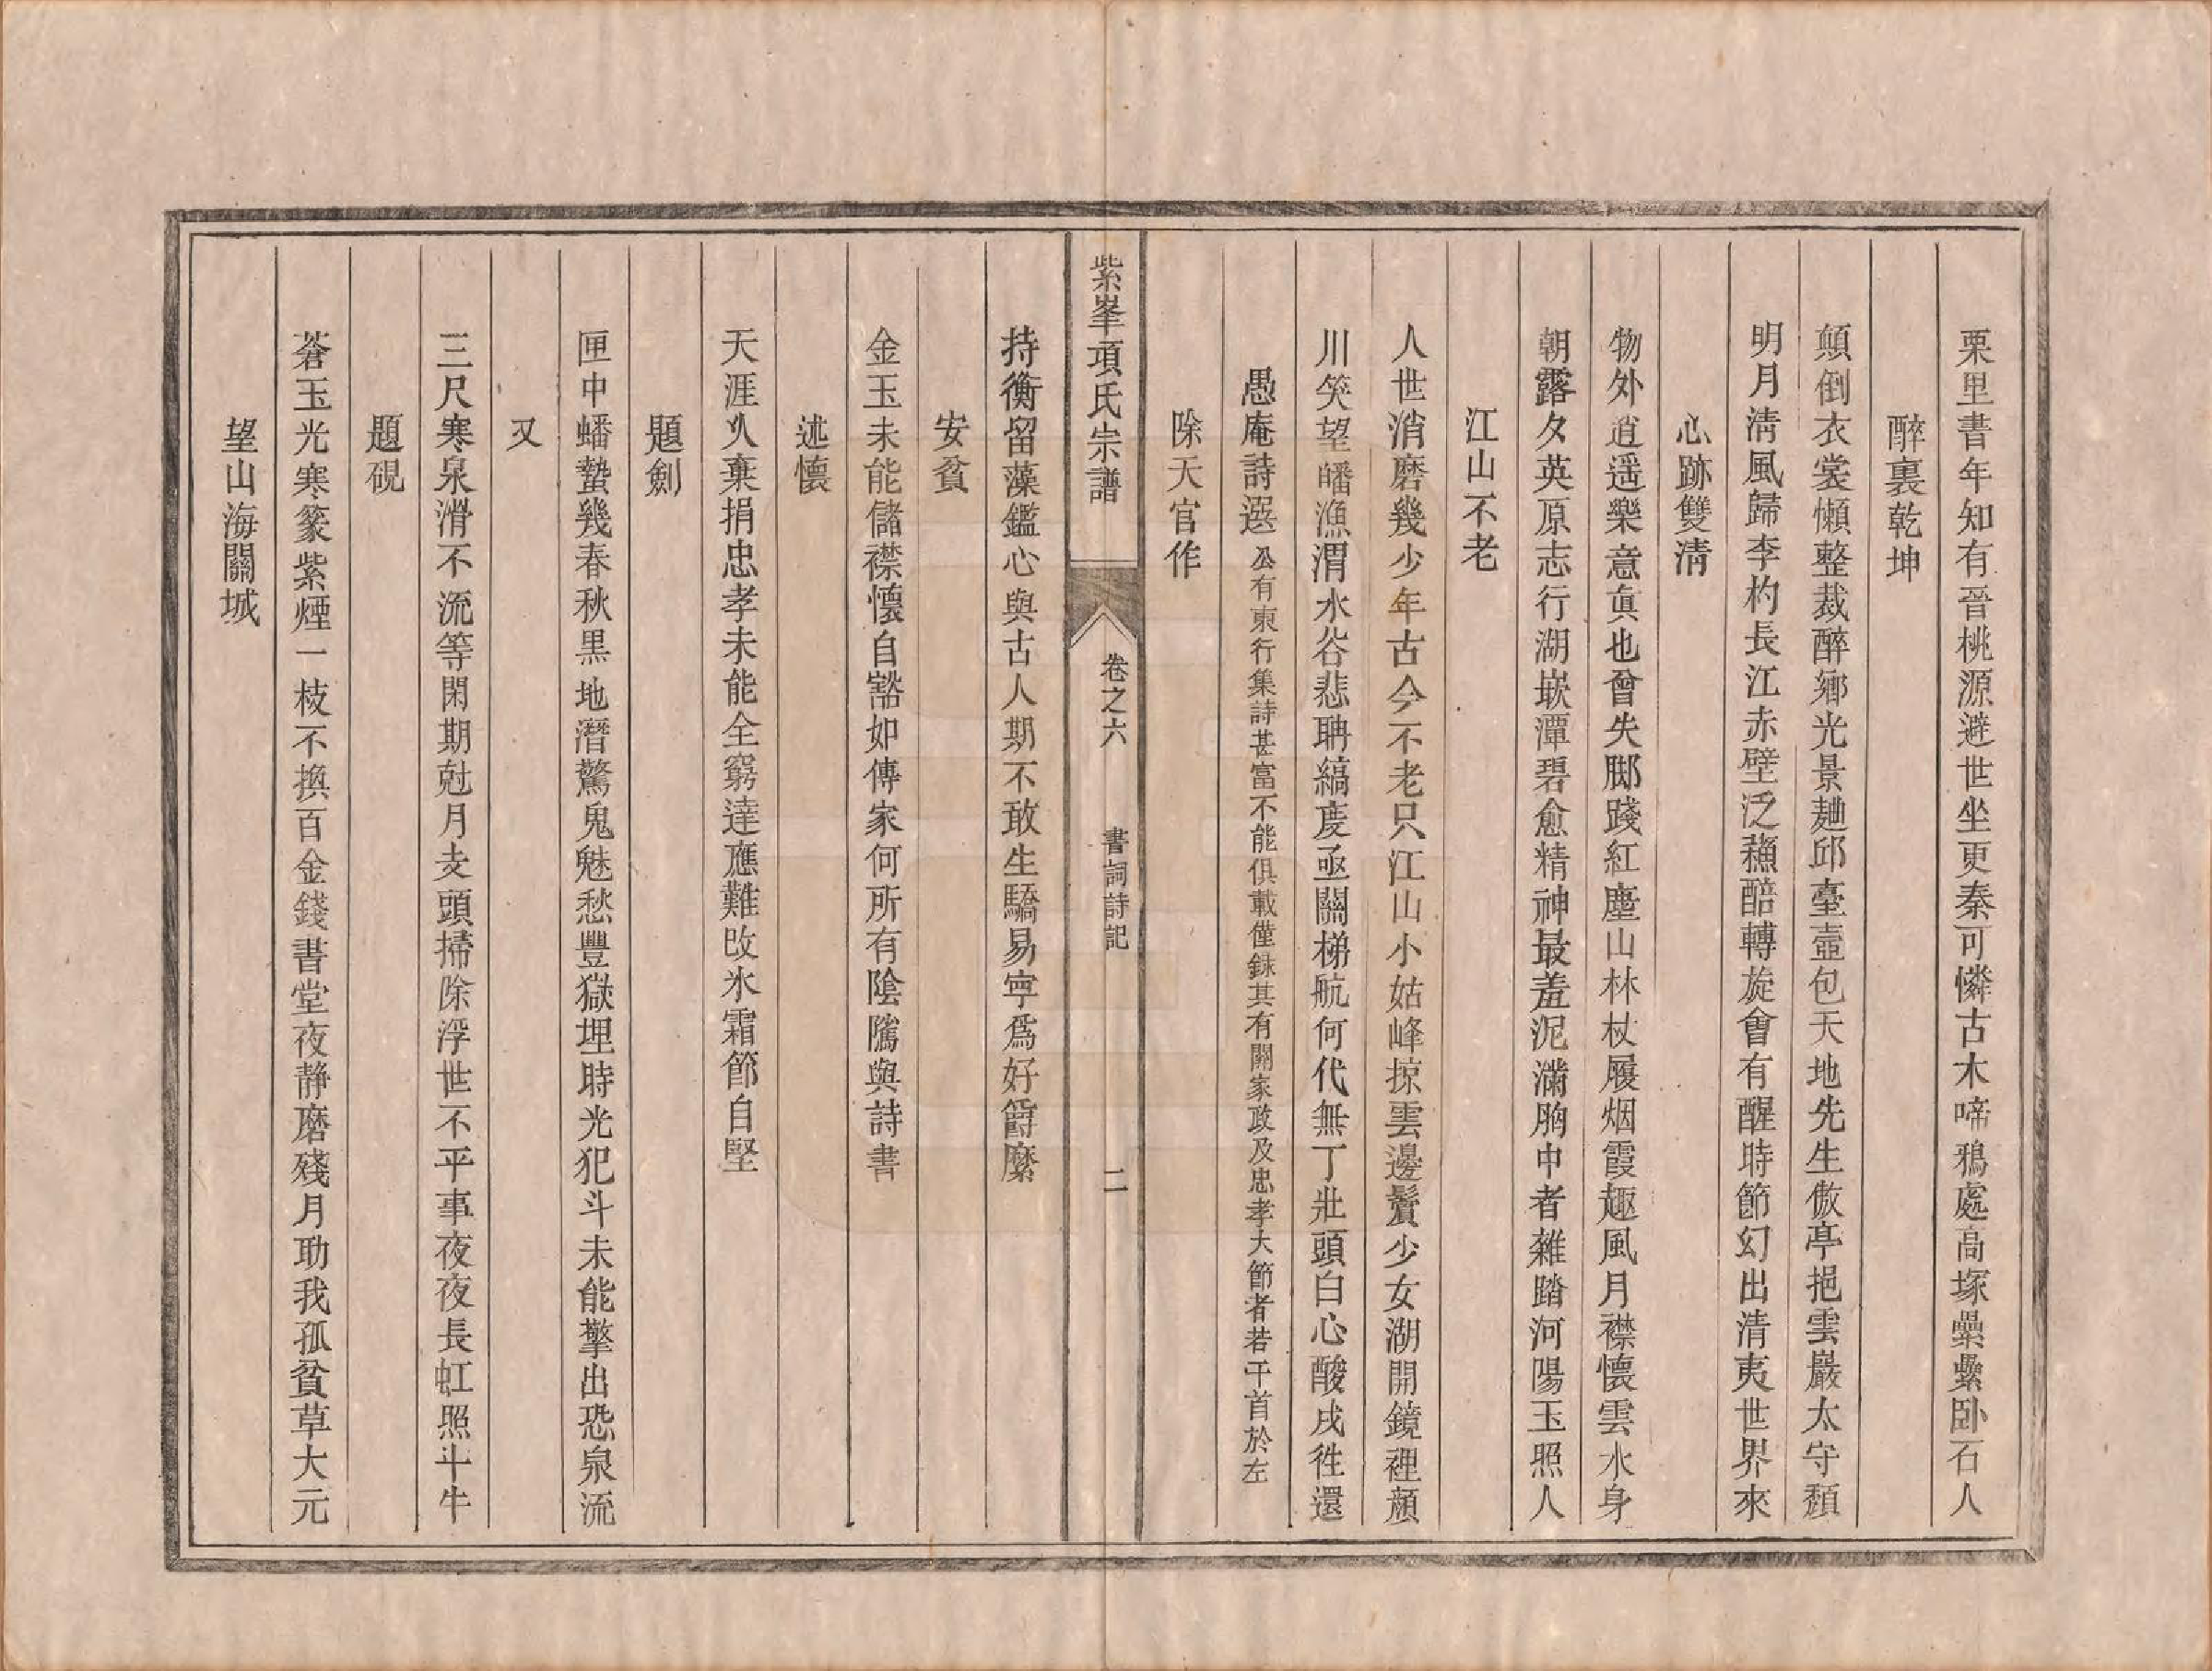 栗里書年知有晉桃源避世坐更秦可憐古木啼鴉處高塚纍纍臥石人
醉裏乾坤
顛倒衣裳懶整裁醉鄉光景麯邱臺壺包天地先生傲亭挹雲巖太守頹
明月淸風歸李杓長江赤壁泛蘓醅轉旋會有醒時節幻出清夷世界來
心跡雙淸
物外逍遥樂意眞也曾失脚踐紅塵山林杖履烟霞趣風月襟懷雲水身
朝露夕英原志行湖嵌潭碧愈精神最羞泥滿胷中者雜踏河陽玉照人
江山不老
人世消磨幾少年古今不老只江山小姑峰掠雲邊鬢少女湖開鏡裡顔
川笑望皤漁渭水谷悲聃縞度函關梯航何代無丁壯頭白心酸戍徃還
愚庵詩選 公有東行集詩甚富不能俱載僅錄其有關家政及忠孝大節者若干首於左
除天官作
紫峯項氏宗譜 卷之六 書詞詩記 二
持衡留藻鑑心與古人期不敢生驕易寧爲好爵縻
安貧
金玉未能儲襟懷自豁如傳家何所有陰隲與詩書
述懷
天涯久棄捐忠孝未能全窮達應難改氷霜節自堅
題劍
匣中蟠蟄幾春秋黒地潛驚鬼魅愁豐獄埋時光犯斗未能擎出恐泉流
又
三尺寒泉滑不流等閑期尅月支頭掃除浮世不平事夜夜長虹照斗牛
題硯
蒼玉光寒篆紫煙一枝不換百金錢書堂夜静磨殘月助我孤貧草大元
望山海關城